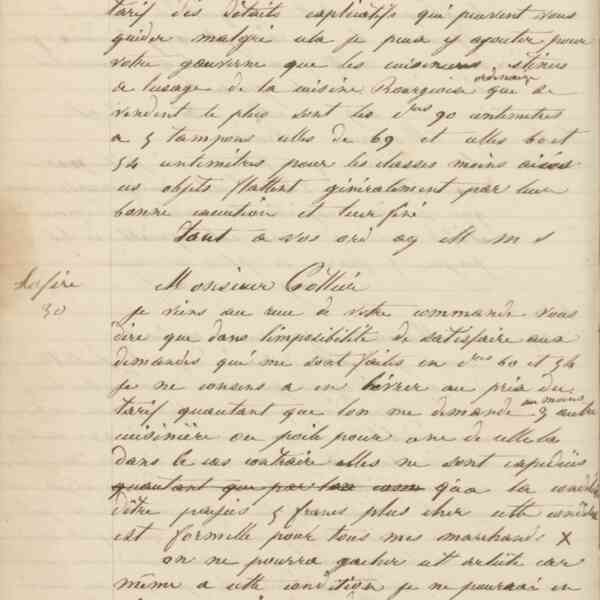 tarif des détails captivatifs qui peuvent vous
guider malgri cela je puis y ajouter pour
votre gouverne que les cuisinieres
a lusage de la cuisine Bourgeoise ordinaire que se
vendent le plus sont les Nos 90 centimetres
a 5 tampons celles de 69 et celles 60 et
54 centimètres pour les classes moins aisées
ces objets flattent généralement par leur
bonne exécution et leur fini
Tout a vos ord ag M m s
La fère
30
Monsieur Collié
je viens au recu de votre commande vous
dire que dans limposibilité de satisfaire aux
demandes qui me sont faites en Nos 60 et 54
je ne consens a en livrer au prix du
tarif quautant que lon me demande au moins 3 autre
cuisinière ou poile pour une de celle la
dans le cas contraire elles ne sont expediées
quautant que par lau com qua la condition
dêtre payées 5 francs plus cher cette condition
est formelle pour tous mes marchands X
on ne pourra garder cet article car
même a cette condition je ne pourrai en